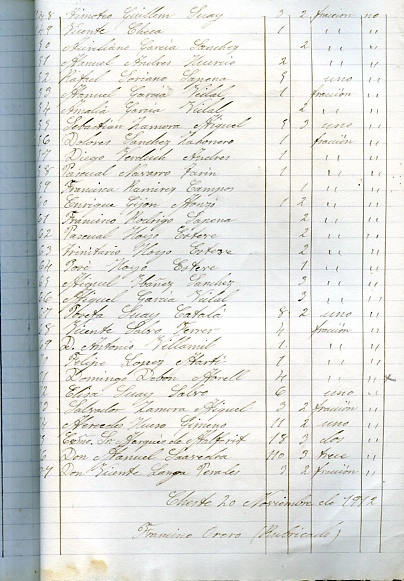 48 Timoteo Guillem Suay 3 2 fracción no
49 Vicente Checa 1 " " "
50 Aureliano García Sanchez 2 " " "
51 Manuel Andres Murcia 2 " " "
52 Rafael Soriano Sapena 8 uno "
53 Manuel García Vidal 1 fracción "
54 Amalia García Vidal 2 " " "
55 Sebastian Zamora Miguel 8 3 uno "
56 Dolores Sanchez Zahonero 1 fracción "
57 Diego Verduch Andres 1 " " "
58 Pascual Navarro Tarin 1 " " "
59 Francisca Ramirez Campos 1 " " "
60 Enrique Gijon 1 2 " " "
61 Francisco Rodrigo Sapena 2 " " "
62 Pascual Hoyo Esteve 2 " " "
63 Trinitario Hoyo Esteve 2 " " "
64 José Hoyo Esteve 1 " " "
65 Miguel Ibañez Sanchez 3 " " "
66 Miguel García Vidal 3 " " "
67 Suay Catalá 8 2 uno "
68 Vicente Salvo Ferrer 4 fracción "
69 D. Antonio Villamil 1 " " "
Felipe Lopez Martí 1 " " "
Domingo Debon Morell 4 " " "
Elisa Suay Salvo 6 uno "
Salvador Zamora Miguel 3 2 fracción "
Mercedes Gimeno 11 2 uno "
Excmo. Sr. Marques de Malferit 18 3 dos "
Don Manuel Saavedra 110 3 trece "
Don Vicente Perales 3 2 fracción "
Cheste 20 Noviembre de 1912
Francisco Orero (Rubricado)